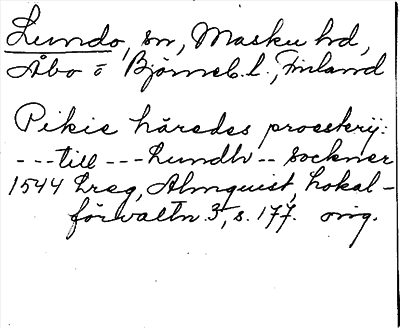 Lundo, sn, Masku hd,
Åbo o Björneb. l., Finland
Pikie häredes proesterij:
---till---Lundh--sockner
1544 Lreg, Almquist, Lokal-
förvaltn. 3, s. 177. orig.